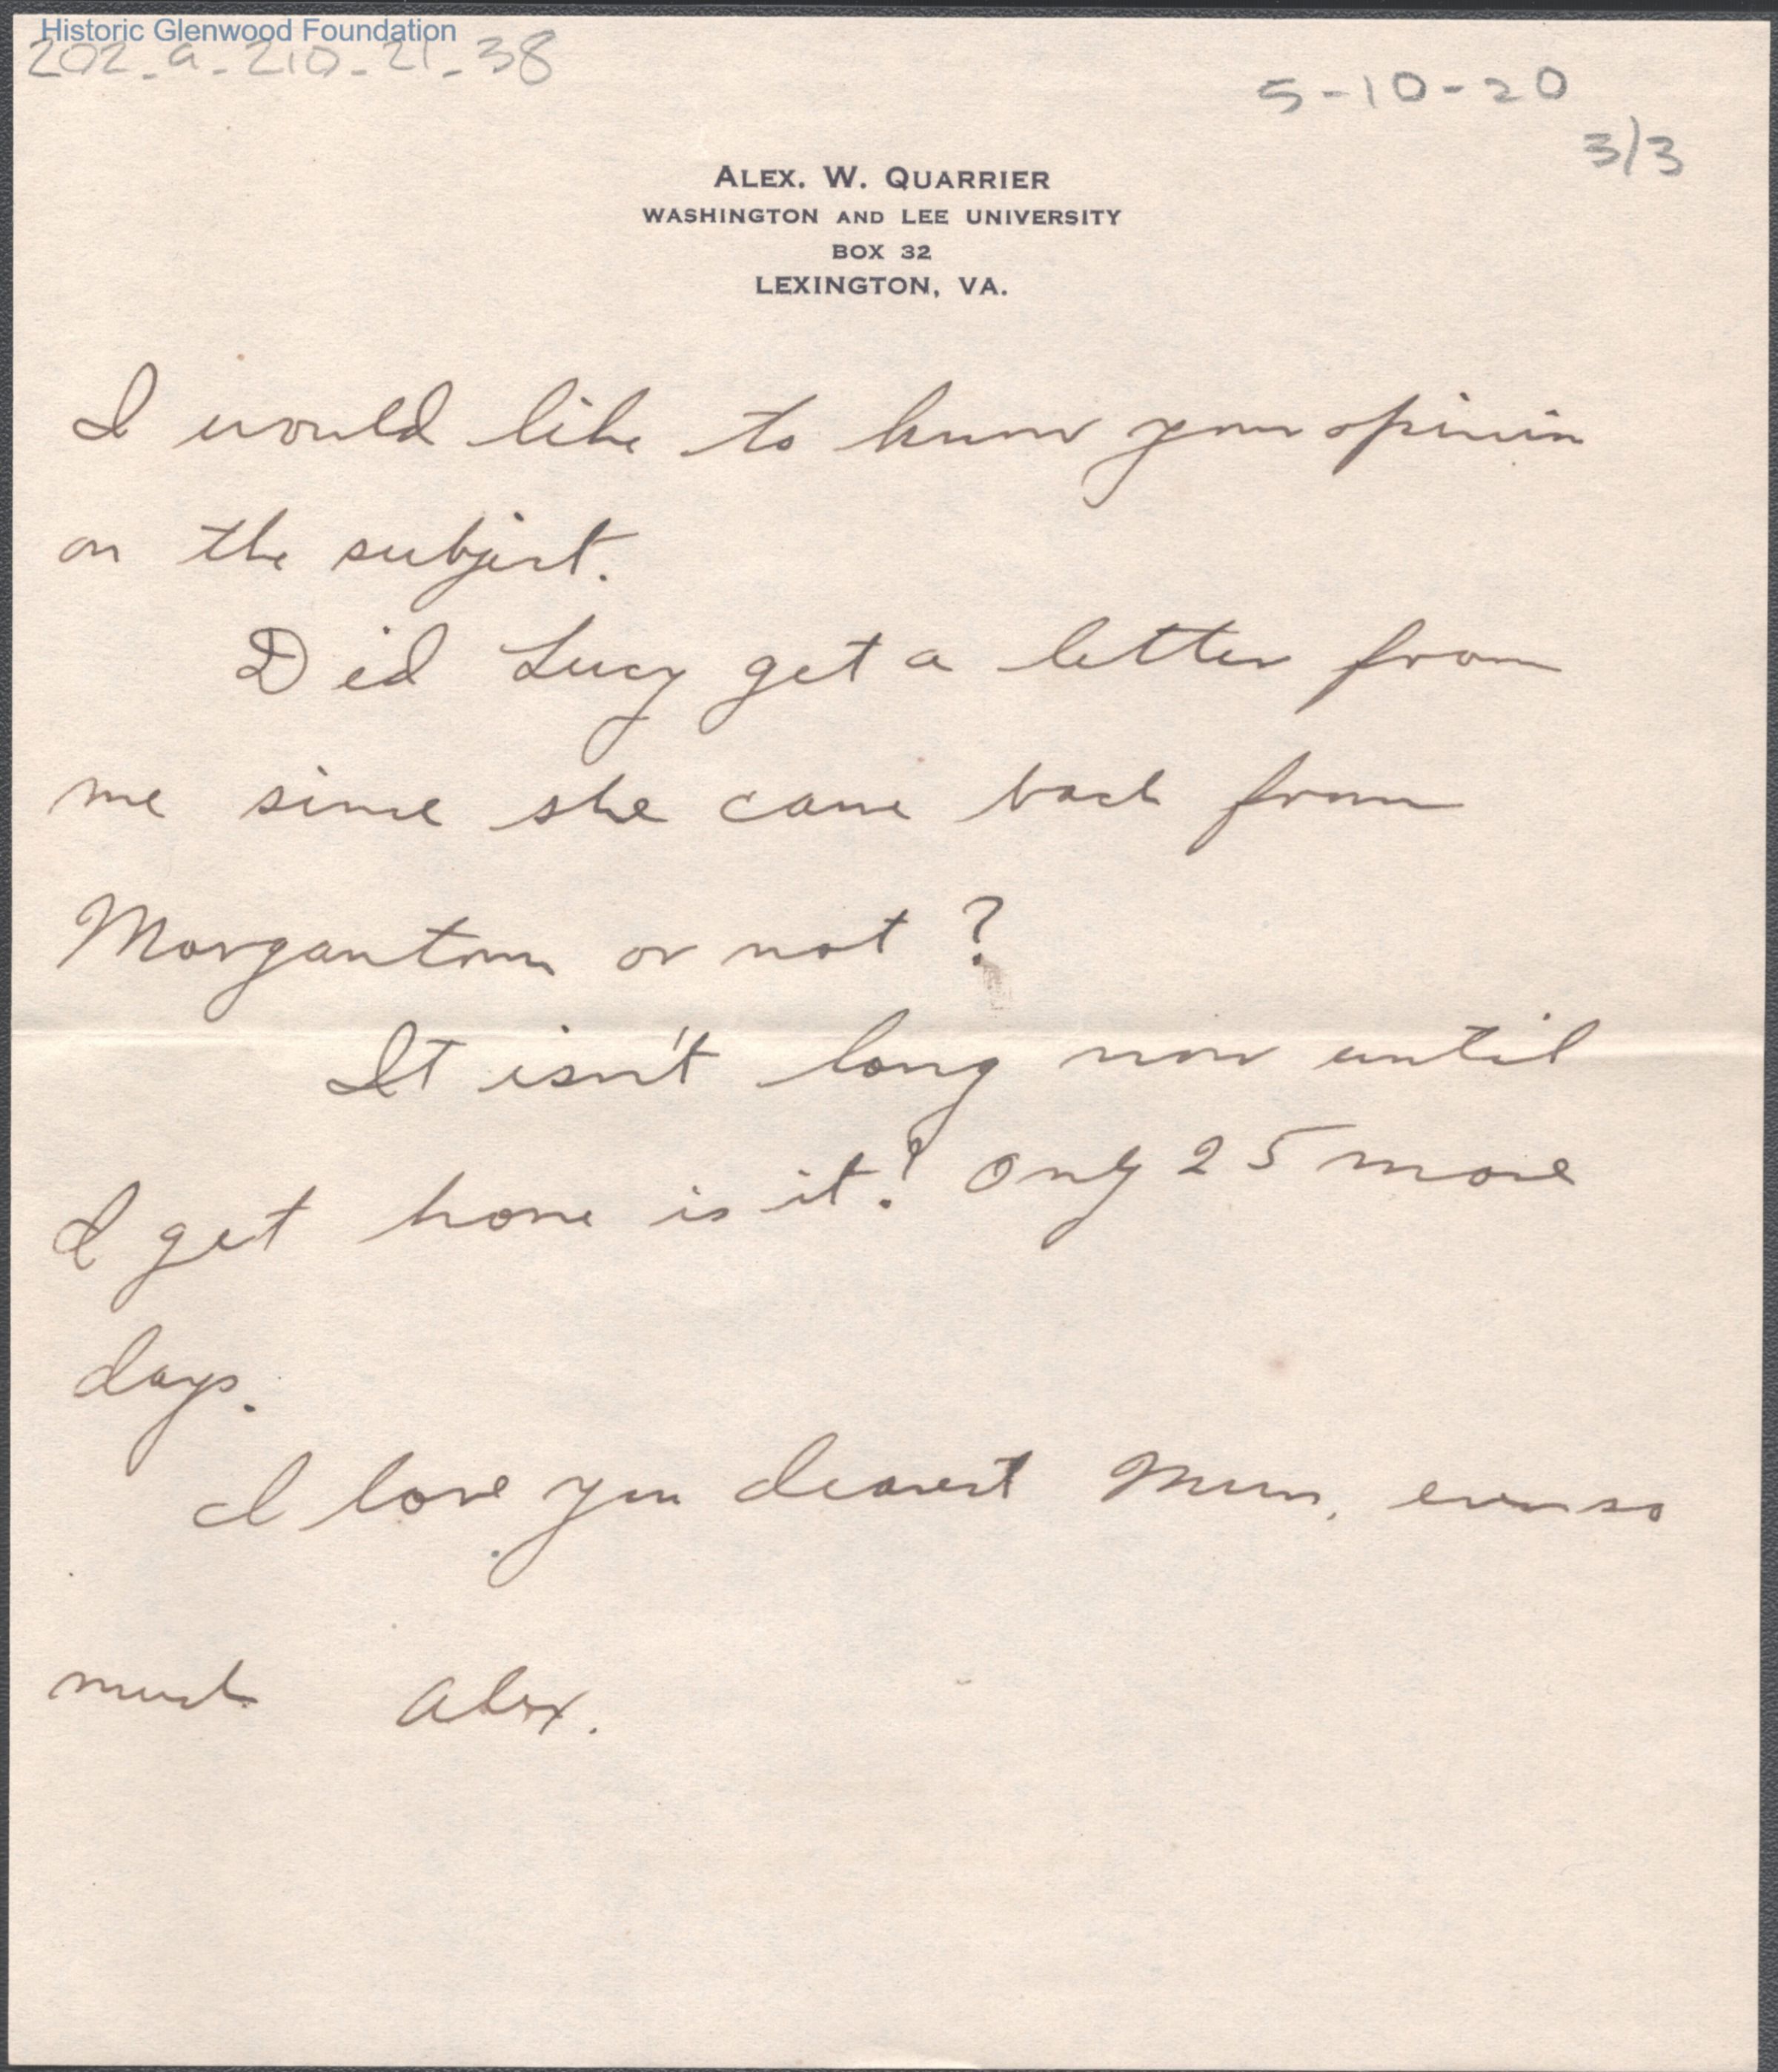 Historic Glenwood Foundation
202-a-210-21-38
5-10-20
3/3
ALEX. W. QUARRIER
WASHINGTON AND LEE UNIVERSITY
BOX 32
LEXINGTON, VA.
I would like to know your opinion
on the subject.
Did Lucy get a letter from
me since she came back from
Morgantown or not?
It isn't long now until
I get home is it? Only 25 more
days.
I love you dearest Mum, ever so
much Alex.